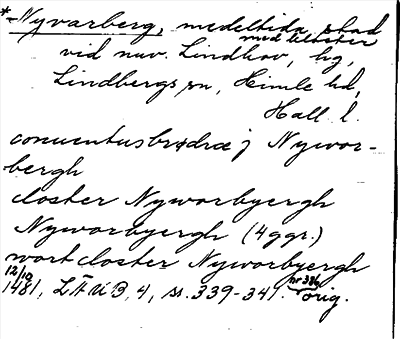 * Nyvarberg, medeltida stad
med kloster
vid nuv. Lindhov, hg,
Lindbergs sn, Himle hd,
Hall. l.
conuentusbrødræ j Nywor-
bergh
closter Nyworbyergh
Nyworbyergh (4 ggr.)
wort closter Nyworbyergh
12/10 1481, LÄUB, 4, ss. 339-341. nr 386 orig.